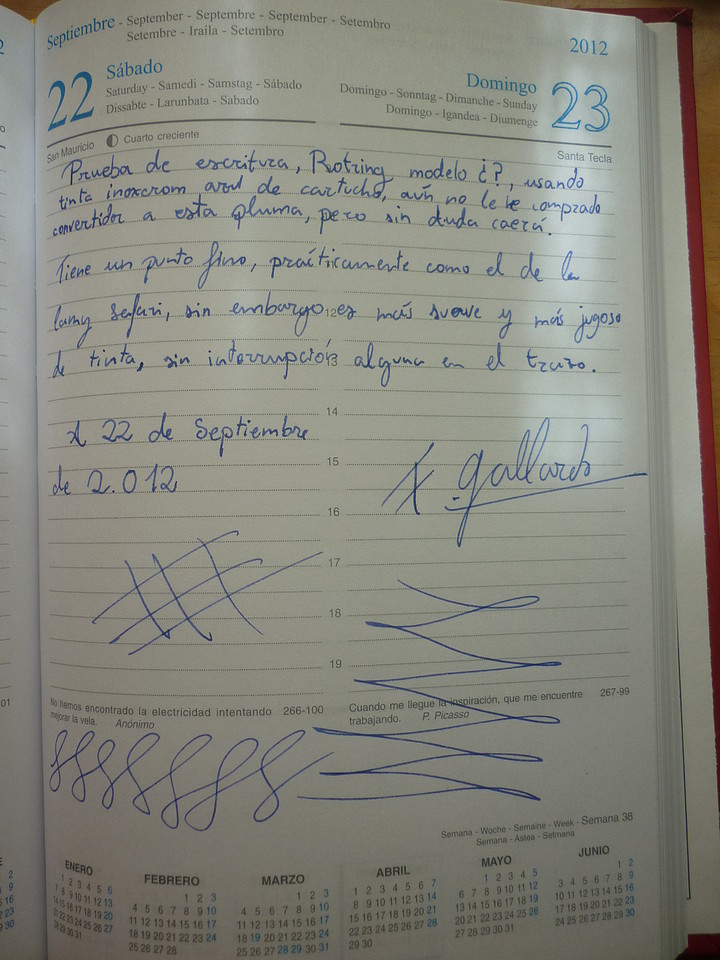 Septiembre - September - Septembre - September - Setembro
Setembre - Iraila - Setembro
2012
22 Sábado
Saturday - Samedi - Samstag - Sábado
Dissabte - Larunbata - Sabado
Domingo 23
Domingo - Sonntag - Dimanche - Sunday
Domingo - Igandea - Diumenge
San Mauricio Cuarto creciente
Santa Tecla
Prueba de escritura, Rotring modelo ¿?, usando
tinta inoxcrom azul de cartucho, aún no le he comprado
convertidor a esta pluma, pero sin duda caerá.
Tiene un punto fino, prácticamente como el de la
lamy safari, sin embargo es más suave y más jugosa
12
de tinta, sin interrupción alguna en el trazo.
13
14
A 22 de Septiembre
15
de 2.012
X. Gallardo
16
17
18
19
No hemos encontrado la electricidad intentando 266-100
mejorar la vela. Anónimo
Cuando me llegue la inspiración, que me encuentre 267-99
trabajando. P. Picasso
Semana - Woche - Semaine - Week - Semana 38
Semana - Astea - Setmana
ENERO
1 2 3 4 5 6
7 8 9 10 11 12 13
14 15 16 17 18 19 20
21 22 23 24 25 26 27
28 29 30 31
FEBRERO
1 2 3
4 5 6 7 8 9 10
11 12 13 14 15 16 17
18 19 20 21 22 23 24
25 26 27 28
MARZO
1 2 3
4 5 6 7 8 9 10
11 12 13 14 15 16 17
18 19 20 21 22 23 24
25 26 27 28 29 30 31
ABRIL
1 2 3 4 5 6 7
8 9 10 11 12 13 14
15 16 17 18 19 20 21
22 23 24 25 26 27 28
29 30
MAYO
1 2 3 4 5
6 7 8 9 10 11 12
13 14 15 16 17 18 19
20 21 22 23 24 25 26
27 28 29 30 31
JUNIO
1 2
3 4 5 6 7 8 9
10 11 12 13 14 15 16
17 18 19 20 21 22 23
24 25 26 27 28 29 30